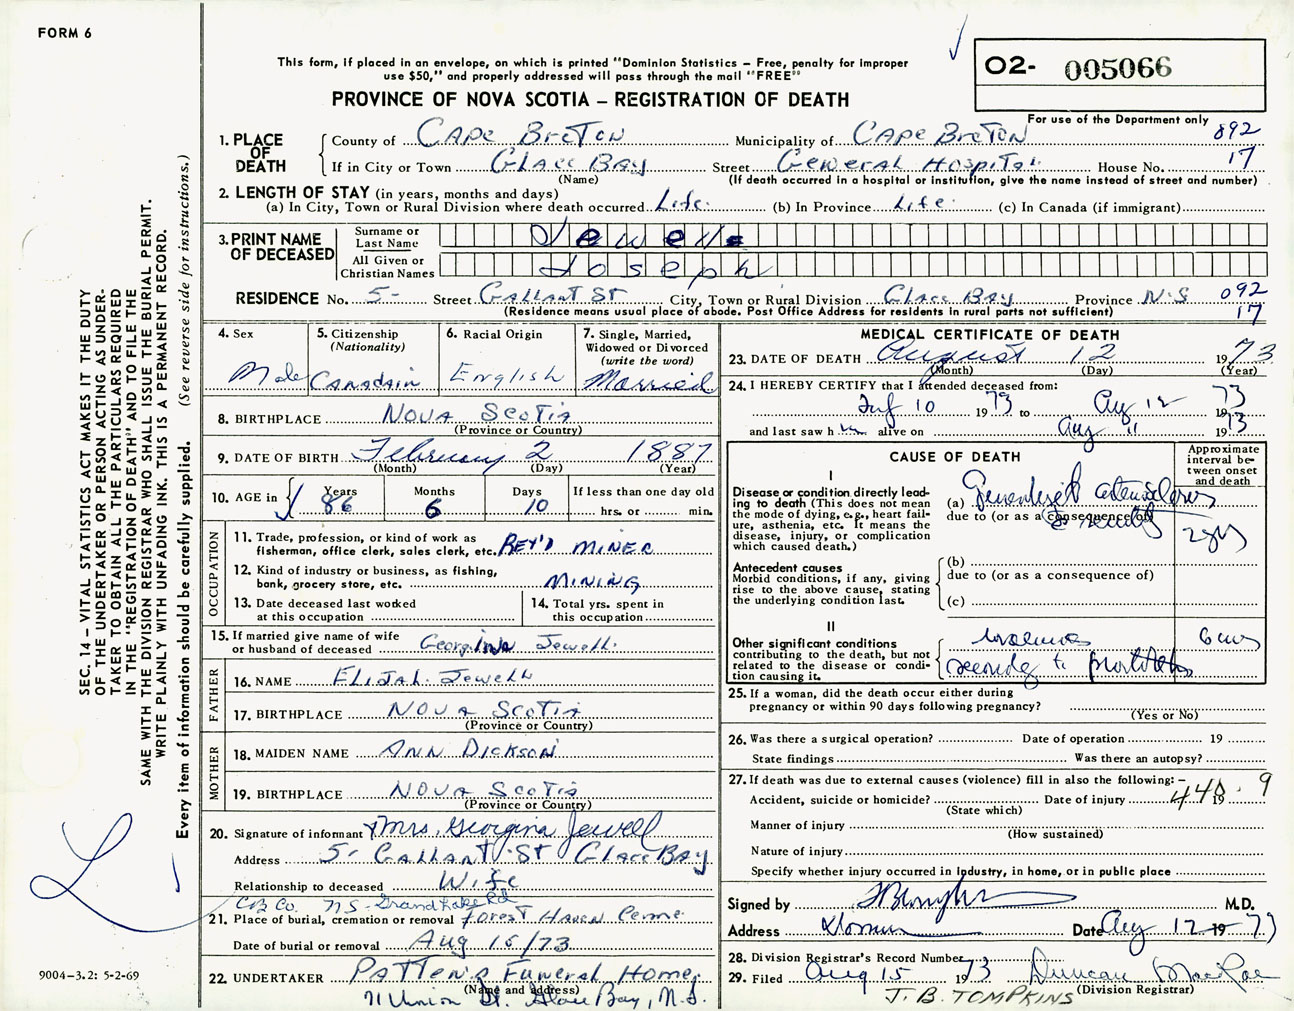 FORM 6
This form, if placed in an envelope, on which is printed "Dominion Statistics – Free, penalty for improper
use $50," and properly addressed will pass through the mail "FREE"
O2- 005066
PROVINCE OF NOVA SCOTIA – REGISTRATION OF DEATH
For use of the Department only
892
17
1. PLACE OF DEATH
County of Cape Breton Municipality of Cape Breton
If in City or Town Glace Bay Street General Hospital House No.
(Name) (If death occurred in a hospital or institution, give the name instead of street and number)
2. LENGTH OF STAY (in years, months and days)
(a) In City, Town or Rural Division where death occurred Life (b) In Province Life (c) In Canada (if immigrant)
3. PRINT NAME OF DECEASED
Surname or Last Name Jewell
All Given or Christian Names Joseph
RESIDENCE No. 5- Street Gallant St City, Town or Rural Division Glace Bay Province N.S 092
(Residence means usual place of abode. Post Office Address for residents in rural parts not sufficient) 17
4. Sex Male
5. Citizenship (Nationality) Canadain
6. Racial Origin English
7. Single, Married, Widowed or Divorced (write the word) Married
8. BIRTHPLACE Nova Scotia
(Province or Country)
9. DATE OF BIRTH February 2 1887
(Month) (Day) (Year)
10. AGE in Years 86 Months 6 Days 10 If less than one day old hrs. or min.
OCCUPATION
11. Trade, profession, or kind of work as
fisherman, office clerk, sales clerk, etc. Ret'd Miner
12. Kind of industry or business, as fishing,
bank, grocery store, etc. Mining
13. Date deceased last worked
at this occupation
14. Total yrs. spent in
this occupation
15. If married give name of wife
or husband of deceased Georgina Jewell
FATHER
16. NAME Elijah Jewell
17. BIRTHPLACE Nova Scotia
(Province or Country)
MOTHER
18. MAIDEN NAME Ann Dickson
19. BIRTHPLACE Nova Scotia
(Province or Country)
20. Signature of informant Mrs. Georgina Jewell
Address 5- Gallant St Glace Bay
Relationship to deceased Wife
CB Co. NS- Grand Lake Rd
21. Place of burial, cremation or removal Forest Haven Ceme
Date of burial or removal Aug 15/73
22. UNDERTAKER Patten's Funeral Home
(Name and address)
71 Union St. Glace Bay, N.S.
MEDICAL CERTIFICATE OF DEATH
23. DATE OF DEATH August 12 1973
(Month) (Day) (Year)
24. I HEREBY CERTIFY that I attended deceased from:
10 1973 to Aug 12 1973
and last saw h alive on Aug 11 1973
CAUSE OF DEATH
Approximate interval between onset and death
I
Disease or condition directly lead-
ing to death (This does not mean
the mode of dying, e.g., heart fail-
ure, asthenia, etc. It means the
disease, injury, or complication
which caused death.)
(a)
due to (or as a consequence of)
Antecedent causes
Morbid conditions, if any, giving
rise to the above cause, stating
the underlying condition last.
(b)
due to (or as a consequence of)
(c)
II
Other significant conditions
contributing to the death, but not
related to the disease or condi-
tion causing it.
25. If a woman, did the death occur either during
pregnancy or within 90 days following pregnancy?
(Yes or No)
26. Was there a surgical operation? Date of operation 19
State findings Was there an autopsy?
27. If death was due to external causes (violence) fill in also the following:–
440.9
Accident, suicide or homicide? Date of injury 19
(State which)
Manner of injury
(How sustained)
Nature of injury
Specify whether injury occurred in industry, in home, or in public place
Signed by M.D.
Address Date Aug 12 1973
28. Division Registrar's Record Number
29. Filed Aug 15 1973 Duncan MacRae
(Division Registrar)
J. B. TOMPKINS
SEC. 14 – VITAL STATISTICS ACT MAKES IT THE DUTY
OF THE UNDERTAKER OR PERSON ACTING AS UNDER-
TAKER TO OBTAIN ALL THE PARTICULARS REQUIRED
IN THE "REGISTRATION OF DEATH" AND TO FILE THE
SAME WITH THE DIVISION REGISTRAR WHO SHALL ISSUE THE BURIAL PERMIT.
WRITE PLAINLY WITH UNFADING INK. THIS IS A PERMANENT RECORD.
Every item of information should be carefully supplied. (See reverse side for instructions.)
9004-3.2: 5-2-69